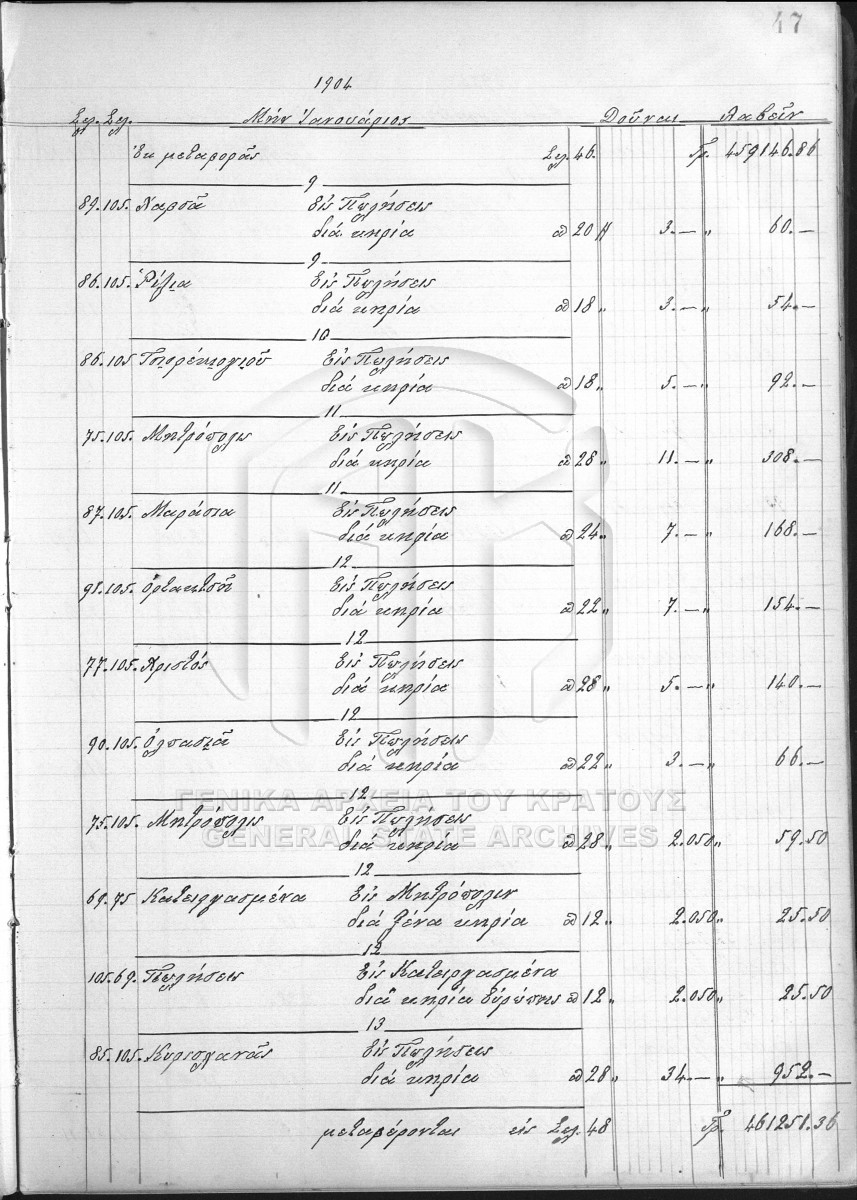 47
1904
Σελ. Σελ. Μὴν Ἰανουάριος Δοῦναι Λαβεῖν
Ἐκ μεταφορᾶς Σελ. 46. Γρ. 459146.86
9
89.105. Εἰς Πωλήσεις
διά κηρία a 20 3.— „ 60.—
9
86.105. Εἰς Πωλήσεις
διά κηρία a 18 „ 3.— „ 54.—
10
86.105 Εἰς Πωλήσεις
διά κηρία a 18 „ 5.— „ 92.—
11
75.105. Μητρόπολις Εἰς Πωλήσεις
διά κηρία a 28 „ 11.— „ 308.—
11
87.105. Μαράσια Εἰς Πωλήσεις
διά κηρία a 24 „ 7.— „ 168.—
12
91.105. Ὀρτακτσῆ Εἰς Πωλήσεις
διά κηρία a 22 „ 7.— „ 154.—
12
77.105. Χριστός Εἰς Πωλήσεις
διά κηρία a 28 „ 5.— „ 140.—
12
90.105. Εἰς Πωλήσεις
διά κηρία a 22 „ 3.— „ 66.—
12
ΓΕΝΙΚΑ ΑΡΧΕΙΑ ΤΟΥ ΚΡΑΤΟΥΣ
75.105. Μητρόπολις Εἰς Πωλήσεις
GENERAL STATE ARCHIVES
διά κηρία a 28 „ 2.050 „ 59.50
12
69.75 Κατειργασμένα Εἰς Μητρόπολιν
διά ξένα κηρία a 12 „ 2.050 „ 25.50
12
105.69. Πωλήσεις Εἰς Κατειργασμένα
διά κηρία Εὐρώπης a 12 „ 2.050 „ 25.50
13
85.105. Εἰς Πωλήσεις
διά κηρία a 28 „ 34.— „ 952.—
μεταφέρονται εἰς Σελ. 48 Γρ. 461251.36